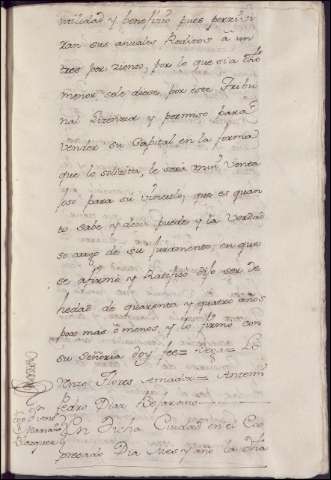 utilidad y beneficio pues percivi
ran sus anuales Reditos â un
tres por ziento, por lo que si a dho
menor, sele diese, por este Tribu
nal Lizencia y permiso para
vender su Capital en la forma
que lo solicita, le sera mui Venta
joso para su vinculo; que es quan
to sabe y decir puede y la Verdad
so cargo de su juramento, en que
se afirmó y Ratificó dijo ser de
hedad de quarenta y quatro años
poco mas ô menos, y lo firmó con
su Señoria doy fee= Vega= Lo
renzo Flores Amador= Antemi
Pedro Diaz Bejarano
En Dicha Ciudad en el Ex
presado Dia Mes y año la dha
Mariano
Blazquez